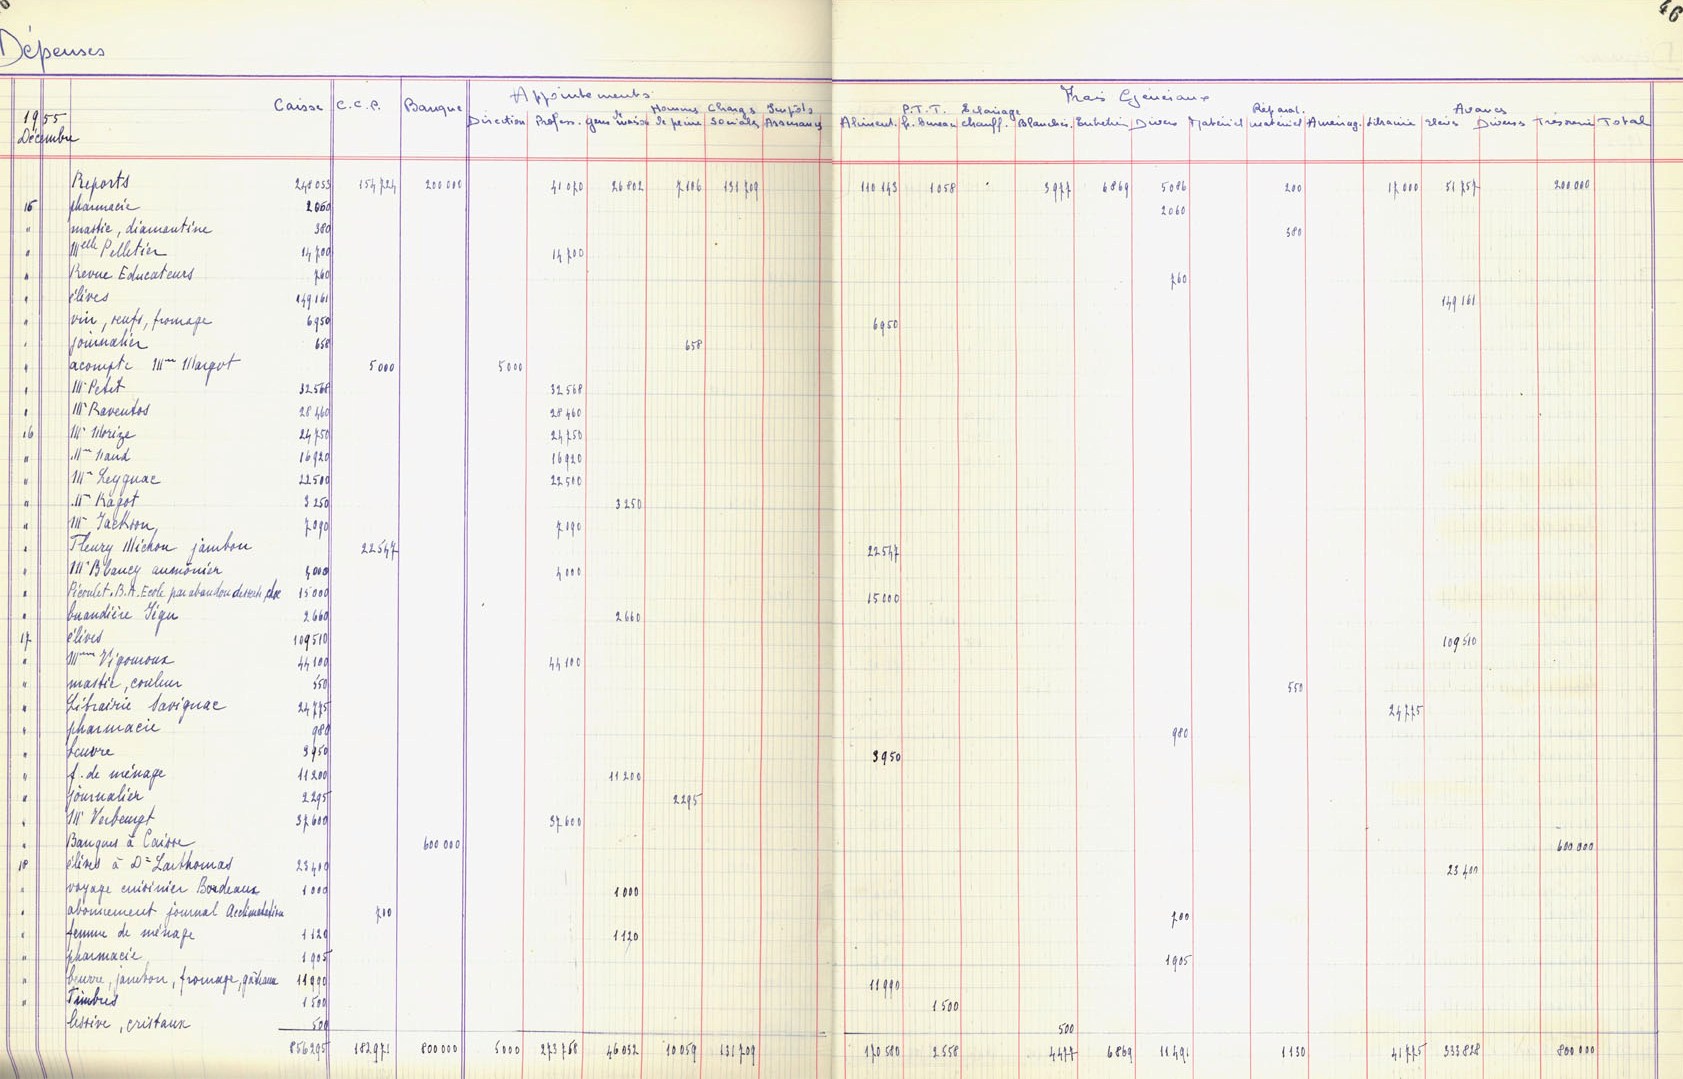 46
Dépenses
Appointements Frais Généraux
Caisse C.C.P. Banque Hommes Charges Impôts P.T.T. Eclairage Réparat. Avances
1955 Direction Profess. gens Maison de peine Sociales Assurances Aliment. f. bureau chauff. Blanchis. Entretien Divers Matériel matériel Aménag. Librairie Elèves Divers Trésorerie Total
Décembre
Reports 248 053 154 724 200 000 41 070 26 802 7 106 131 709 110 143 1 058 3 977 6 869 5 086 200 17 000 51 757 200 000
15 pharmacie 2 060 2 060
" mastic, diamantine 380 380
" Melle Pelletier 14 700 14 700
" Revue Educateurs 760 760
" élèves 149 161 149 161
" vin, oeufs, fromage 6 950 6 950
" journalier 658 658
" acompte Mme Margot 5 000 5 000
" Mr Petit 32 568 32 568
" Mr Raventos 28 460 28 460
16 Mr Morize 24 750 24 750
" 16 920 16 920
" Leygnac 22 500 22 500
" Ragot 3 250 3 250
" Mr Jackson 7 090 7 090
" Fleury Michon jambon 22 547 22 547
" Mr Blancy aumônier 4 000 4 000
" Pécoulet. B.A. Ecole par abandon 15 000 15 000
" buandière Jégu 2 660 2 660
17 élèves 109 510 109 510
" Vigouroux 44 100 44 100
" mastic, couleur 550 550
" Librairie Savignac 24 775 24 775
" pharmacie 980 980
" beurre 3 950 3 950
" f. de ménage 11 200 11 200
" journalier 2 295 2 295
" Mr Verbeugt 37 600 37 600
" Banques à Caisse 600 000 600 000
18 élèves à Dr Larthomas 23 400 23 400
" voyage cuisinier Bordeaux 1 000 1 000
" abonnement journal Acclimatation 700 700
" femme de ménage 1 120 1 120
" pharmacie 1 905 1 905
" beurre, jambon, fromage, gâteaux 11 990 11 990
" Timbres 1 500 1 500
lessive, cristaux 500 500
856 295 182 971 800 000 5 000 273 758 46 032 10 059 131 709 170 580 2 558 4 477 6 869 11 491 1 130 41 775 333 828 800 000